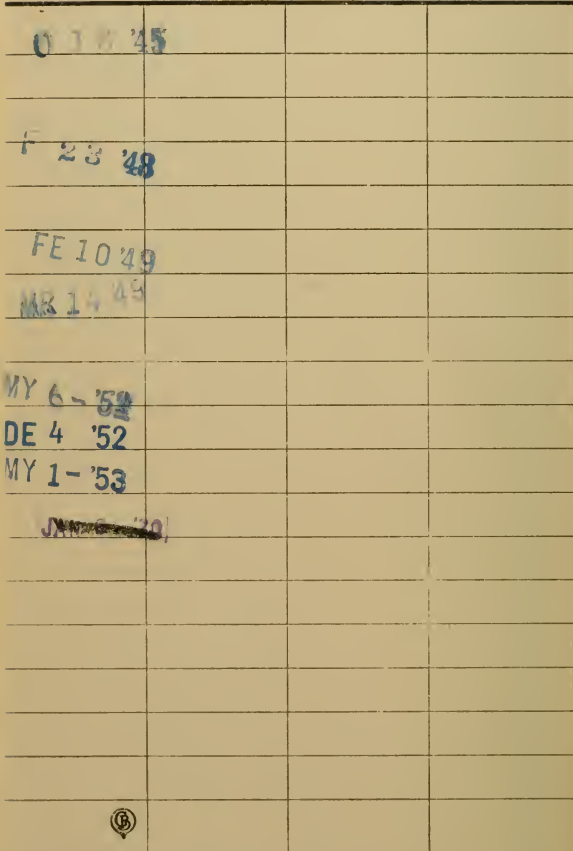 '45
F 23 '48
FE 10 '49
MR 14 '49
MY 6 - '52
DE 4 '52
MY 1 - '53